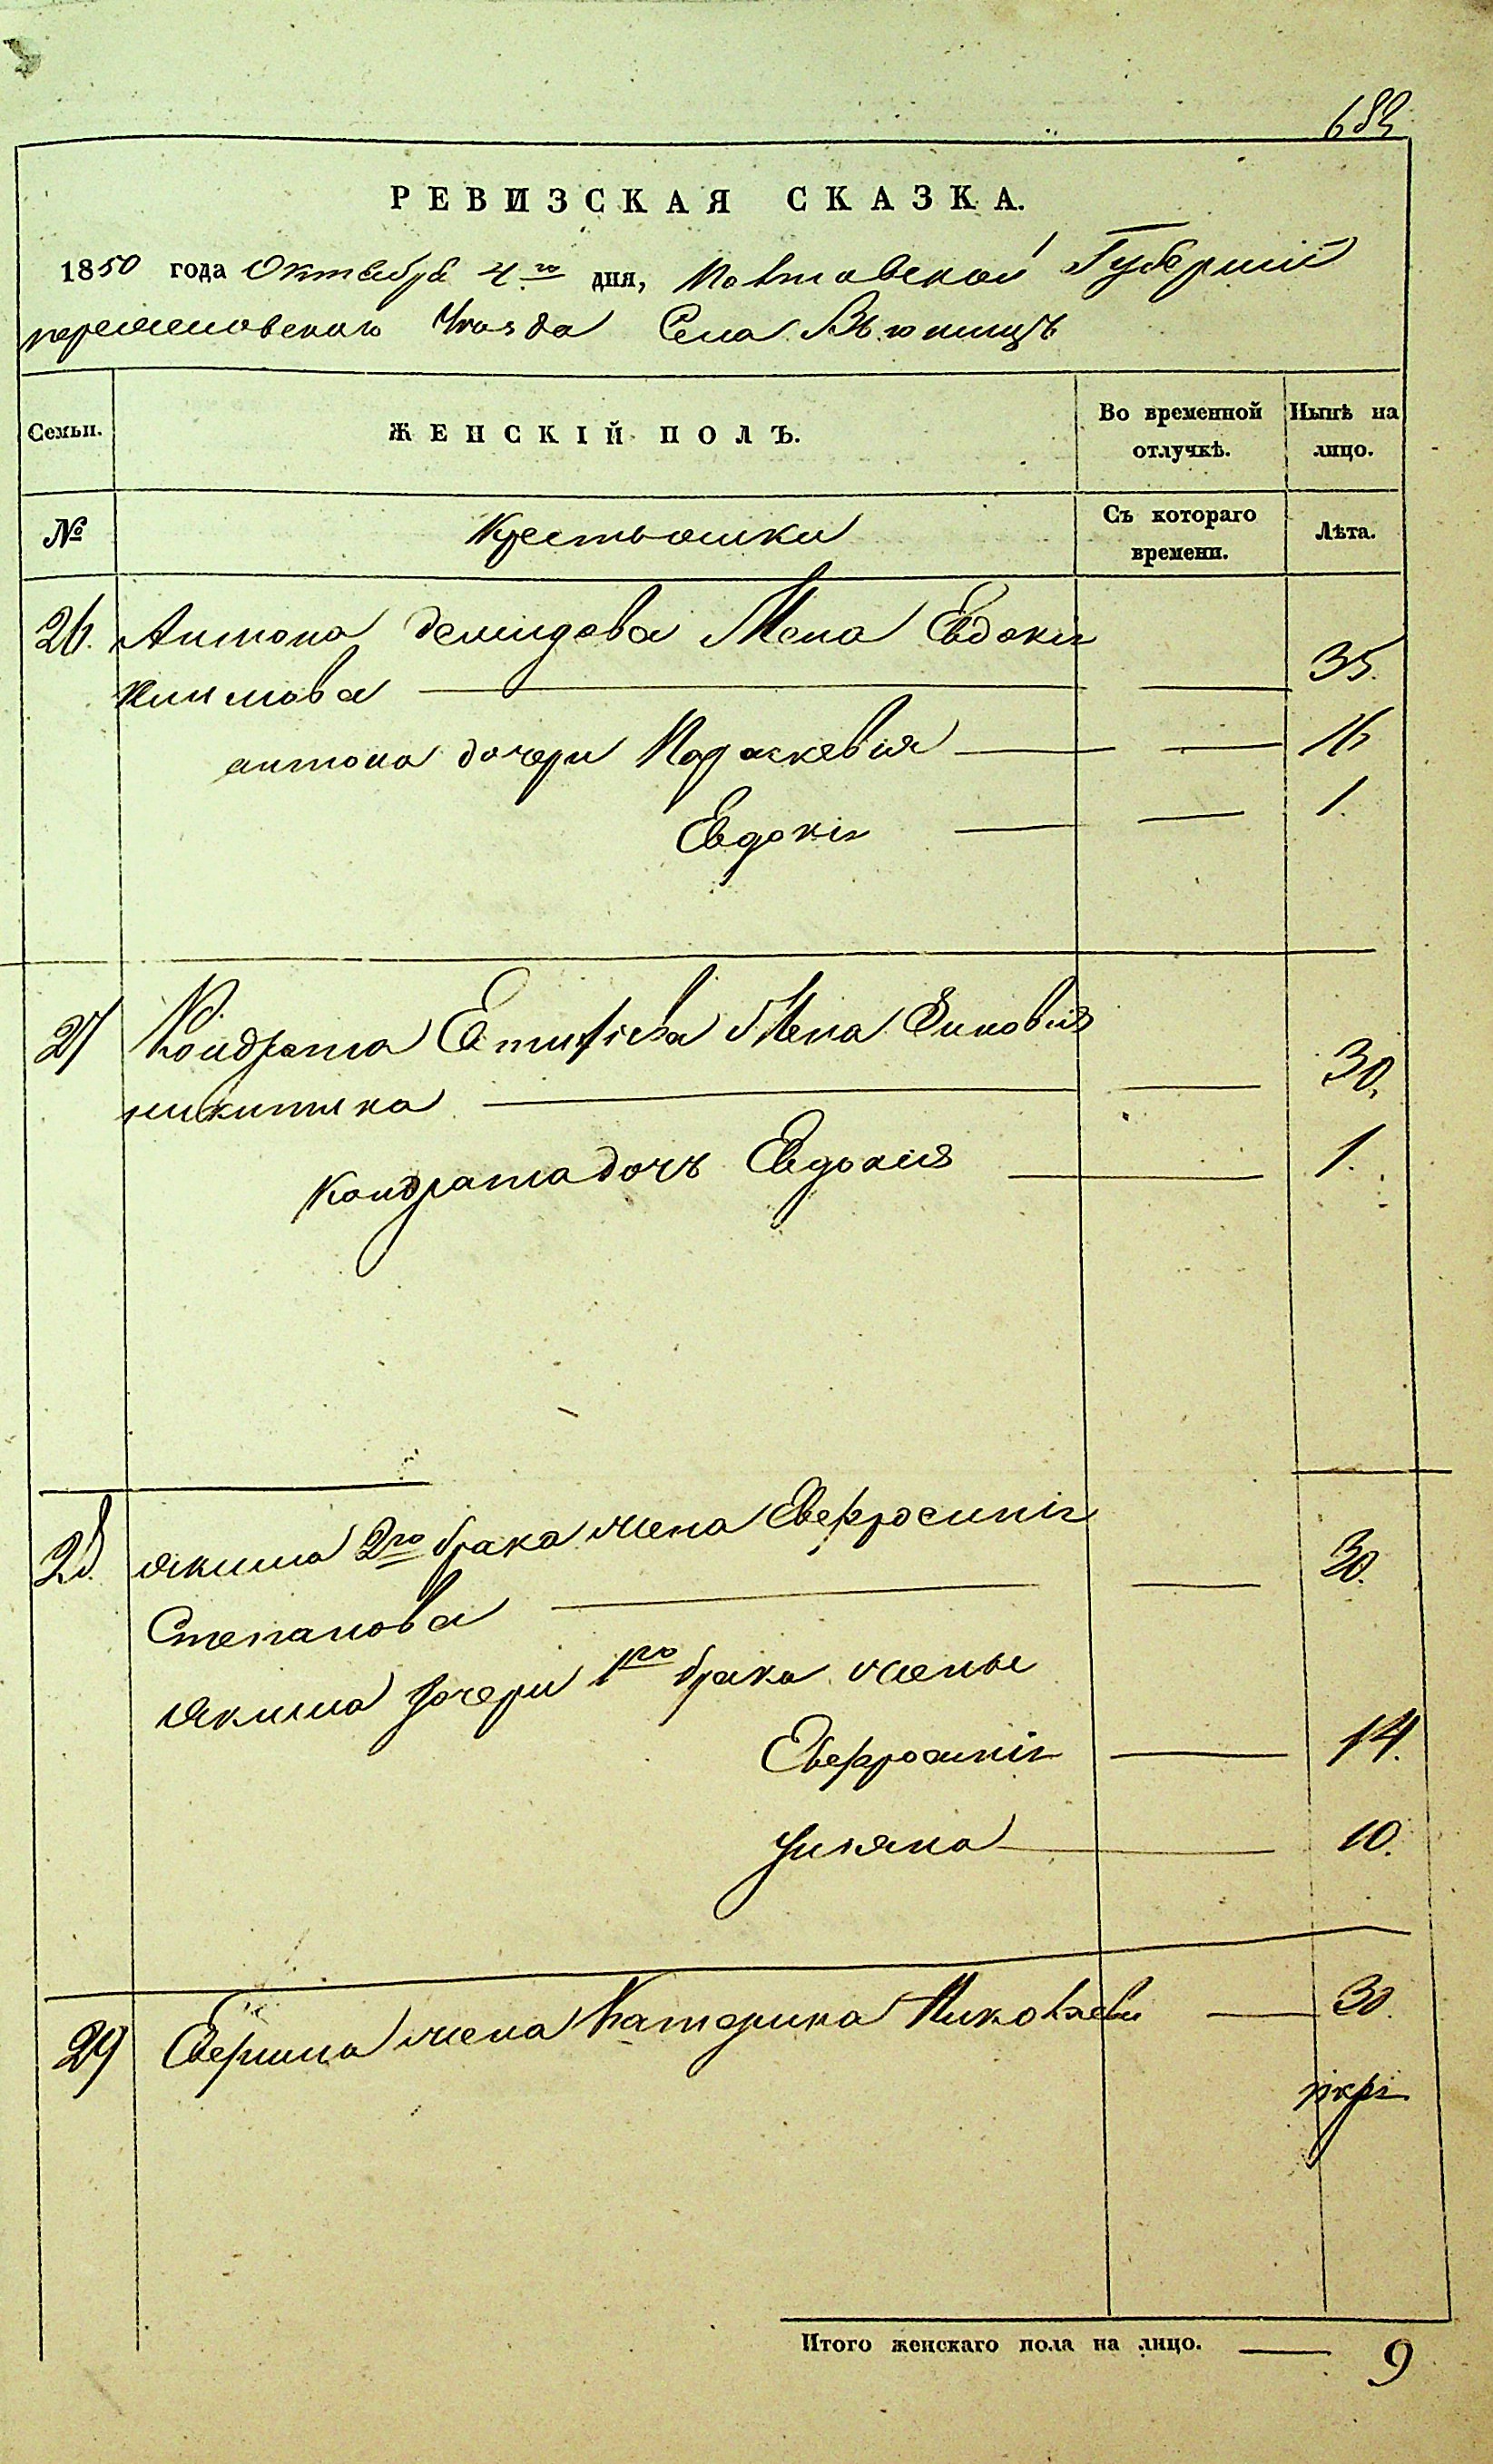 683
РЕВИЗСКАЯ СКАЗКА.
1850 года Октября 4го дня, Полтавской Губерніи
переяславскаго Уезда Села Вьюнищъ
Семьи. ЖЕНСКІЙ ПОЛЪ. Во временной отлучкѣ. Нынѣ на лицо.
№ Крестьянки Съ котораго времени. Лѣта.
26. Антона демидова Жена Евдокія
климова 35.
антона дочери Параскевія 16
Евдокія 1.
27 Кондрата Евтифіева Жена Зиновія
никитина 30.
кондрата дочь Евдокія 1.
28. якима 2го брака жена Евфросинія
Степанова 30.
якима дочери 1го брака жены
Евфросинія 14.
Ульяна 10.
29 жена Катерина Николаева 30.
Итого женскаго пола на лицо. 9